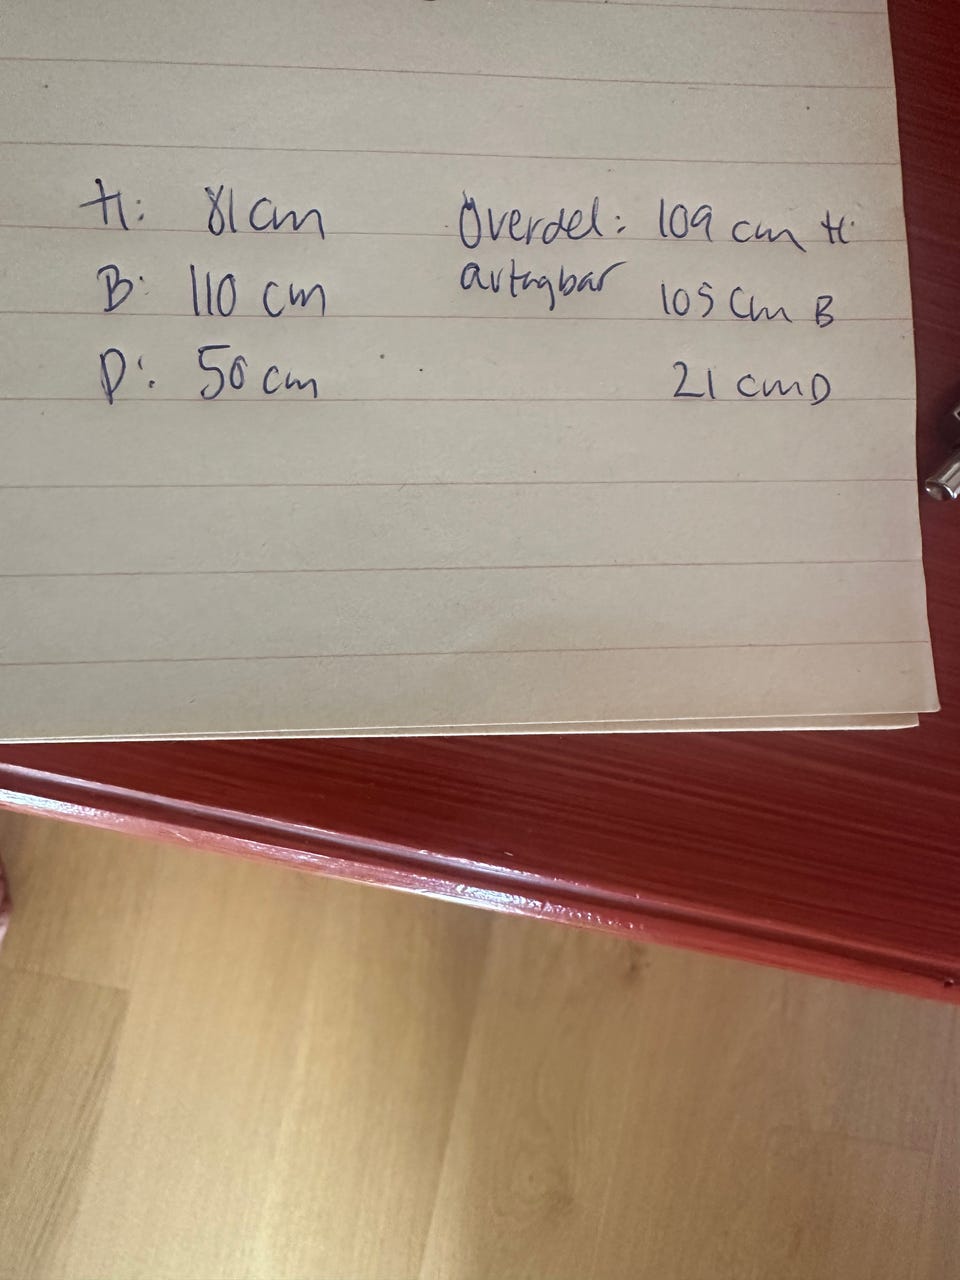 H: 81 cm
B: 110 cm
D: 50 cm
Överdel: 109 cm H
avtagbar
105 cm B
21 cm D